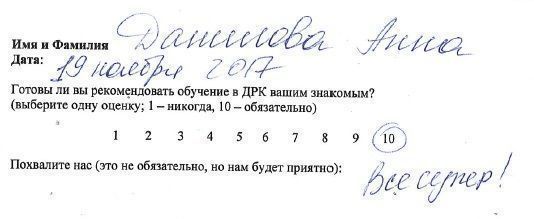 Имя и Фамилия Данилова Анна
Дата: 19 ноября 2017
Готовы ли вы рекомендовать обучение в ДРК вашим знакомым?
(выберите одну оценку; 1 – никогда, 10 – обязательно)
1 2 3 4 5 6 7 8 9 10
Похвалите нас (это не обязательно, но нам будет приятно): Все супер!